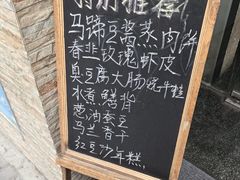 特别推荐
马蹄豆酱蒸肉饼
春韭玫瑰虾皮
臭豆腐大肠烧千丝
水煮鳝背
葱油蚕豆
马兰香干
红豆沙年糕